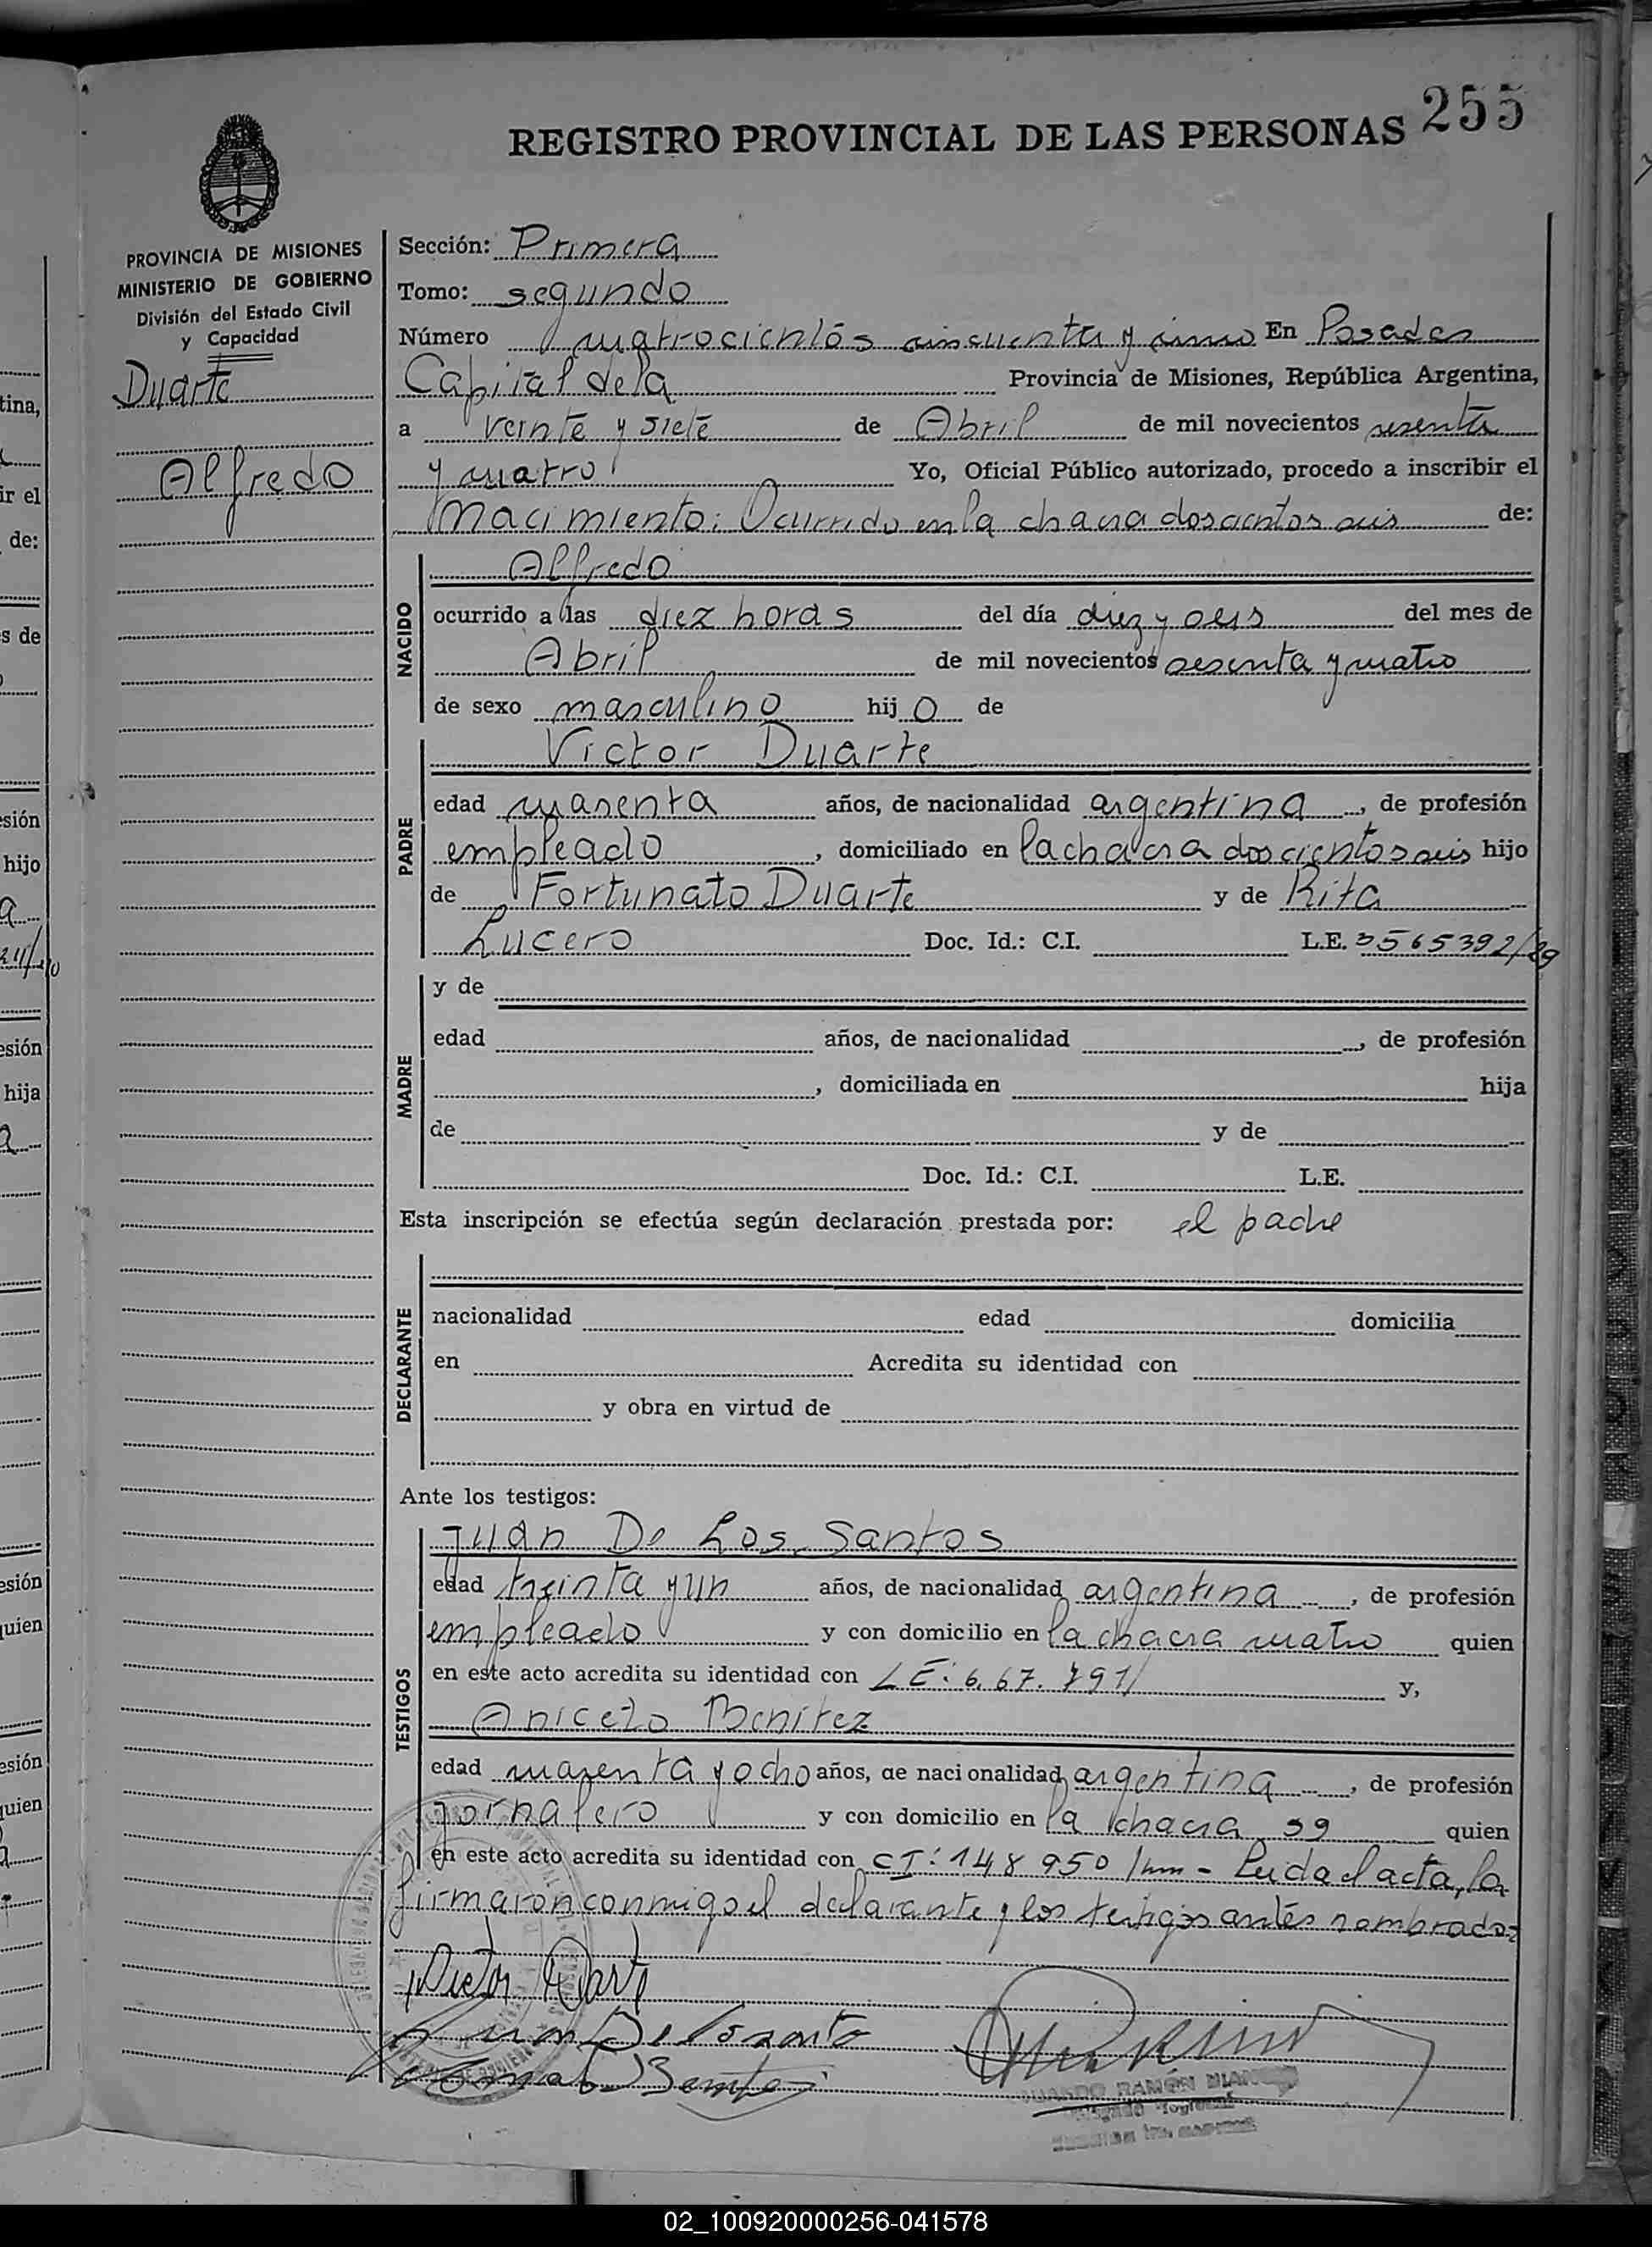 255
REGISTRO PROVINCIAL DE LAS PERSONAS
PROVINCIA DE MISIONES
MINISTERIO DE GOBIERNO
División del Estado Civil
y Capacidad
Duarte
Alfredo
Sección: Primera
Tomo: segundo
Número cuatrocientos cincuenta y cinco En Posadas
Capital de la Provincia de Misiones, República Argentina,
a veinte y siete de Abril de mil novecientos sesenta
y cuatro Yo, Oficial Público autorizado, procedo a inscribir el
Nacimiento: Ocurrido en la chacra doscientos seis de:
NACIDO
Alfredo
ocurrido a las diez horas del día diez y seis del mes de
Abril de mil novecientos sesenta y cuatro
de sexo masculino hijo de
PADRE
Victor Duarte
edad cuarenta años, de nacionalidad argentina, de profesión
empleado, domiciliado en la chacra doscientos seis hijo
de Fortunato Duarte y de Rita
Lucero Doc. Id.: C.I. L.E. 3565392/39
MADRE
y de
edad años, de nacionalidad , de profesión
, domiciliada en hija
de y de
Doc. Id.: C.I. L.E.
Esta inscripción se efectúa según declaración prestada por: el padre
DECLARANTE
nacionalidad edad domicilia
en Acredita su identidad con
y obra en virtud de
Ante los testigos:
TESTIGOS
Juan De Los Santos
edad treinta y un años, de nacionalidad argentina, de profesión
empleado y con domicilio en la chacra cuatro quien
en este acto acredita su identidad con LE: 6.67.791/ y,
Aniceto Benitez
edad cuarenta y ocho años, de nacionalidad argentina, de profesión
jornalero y con domicilio en la chacra 99 quien
en este acto acredita su identidad con CI: 148950 - Leida el acta, la
firmaron conmigo el declarante y los testigos antes nombrados
Victor Duarte
Juan De Losanto
Benitez
RAMON
02_100920000256-041578